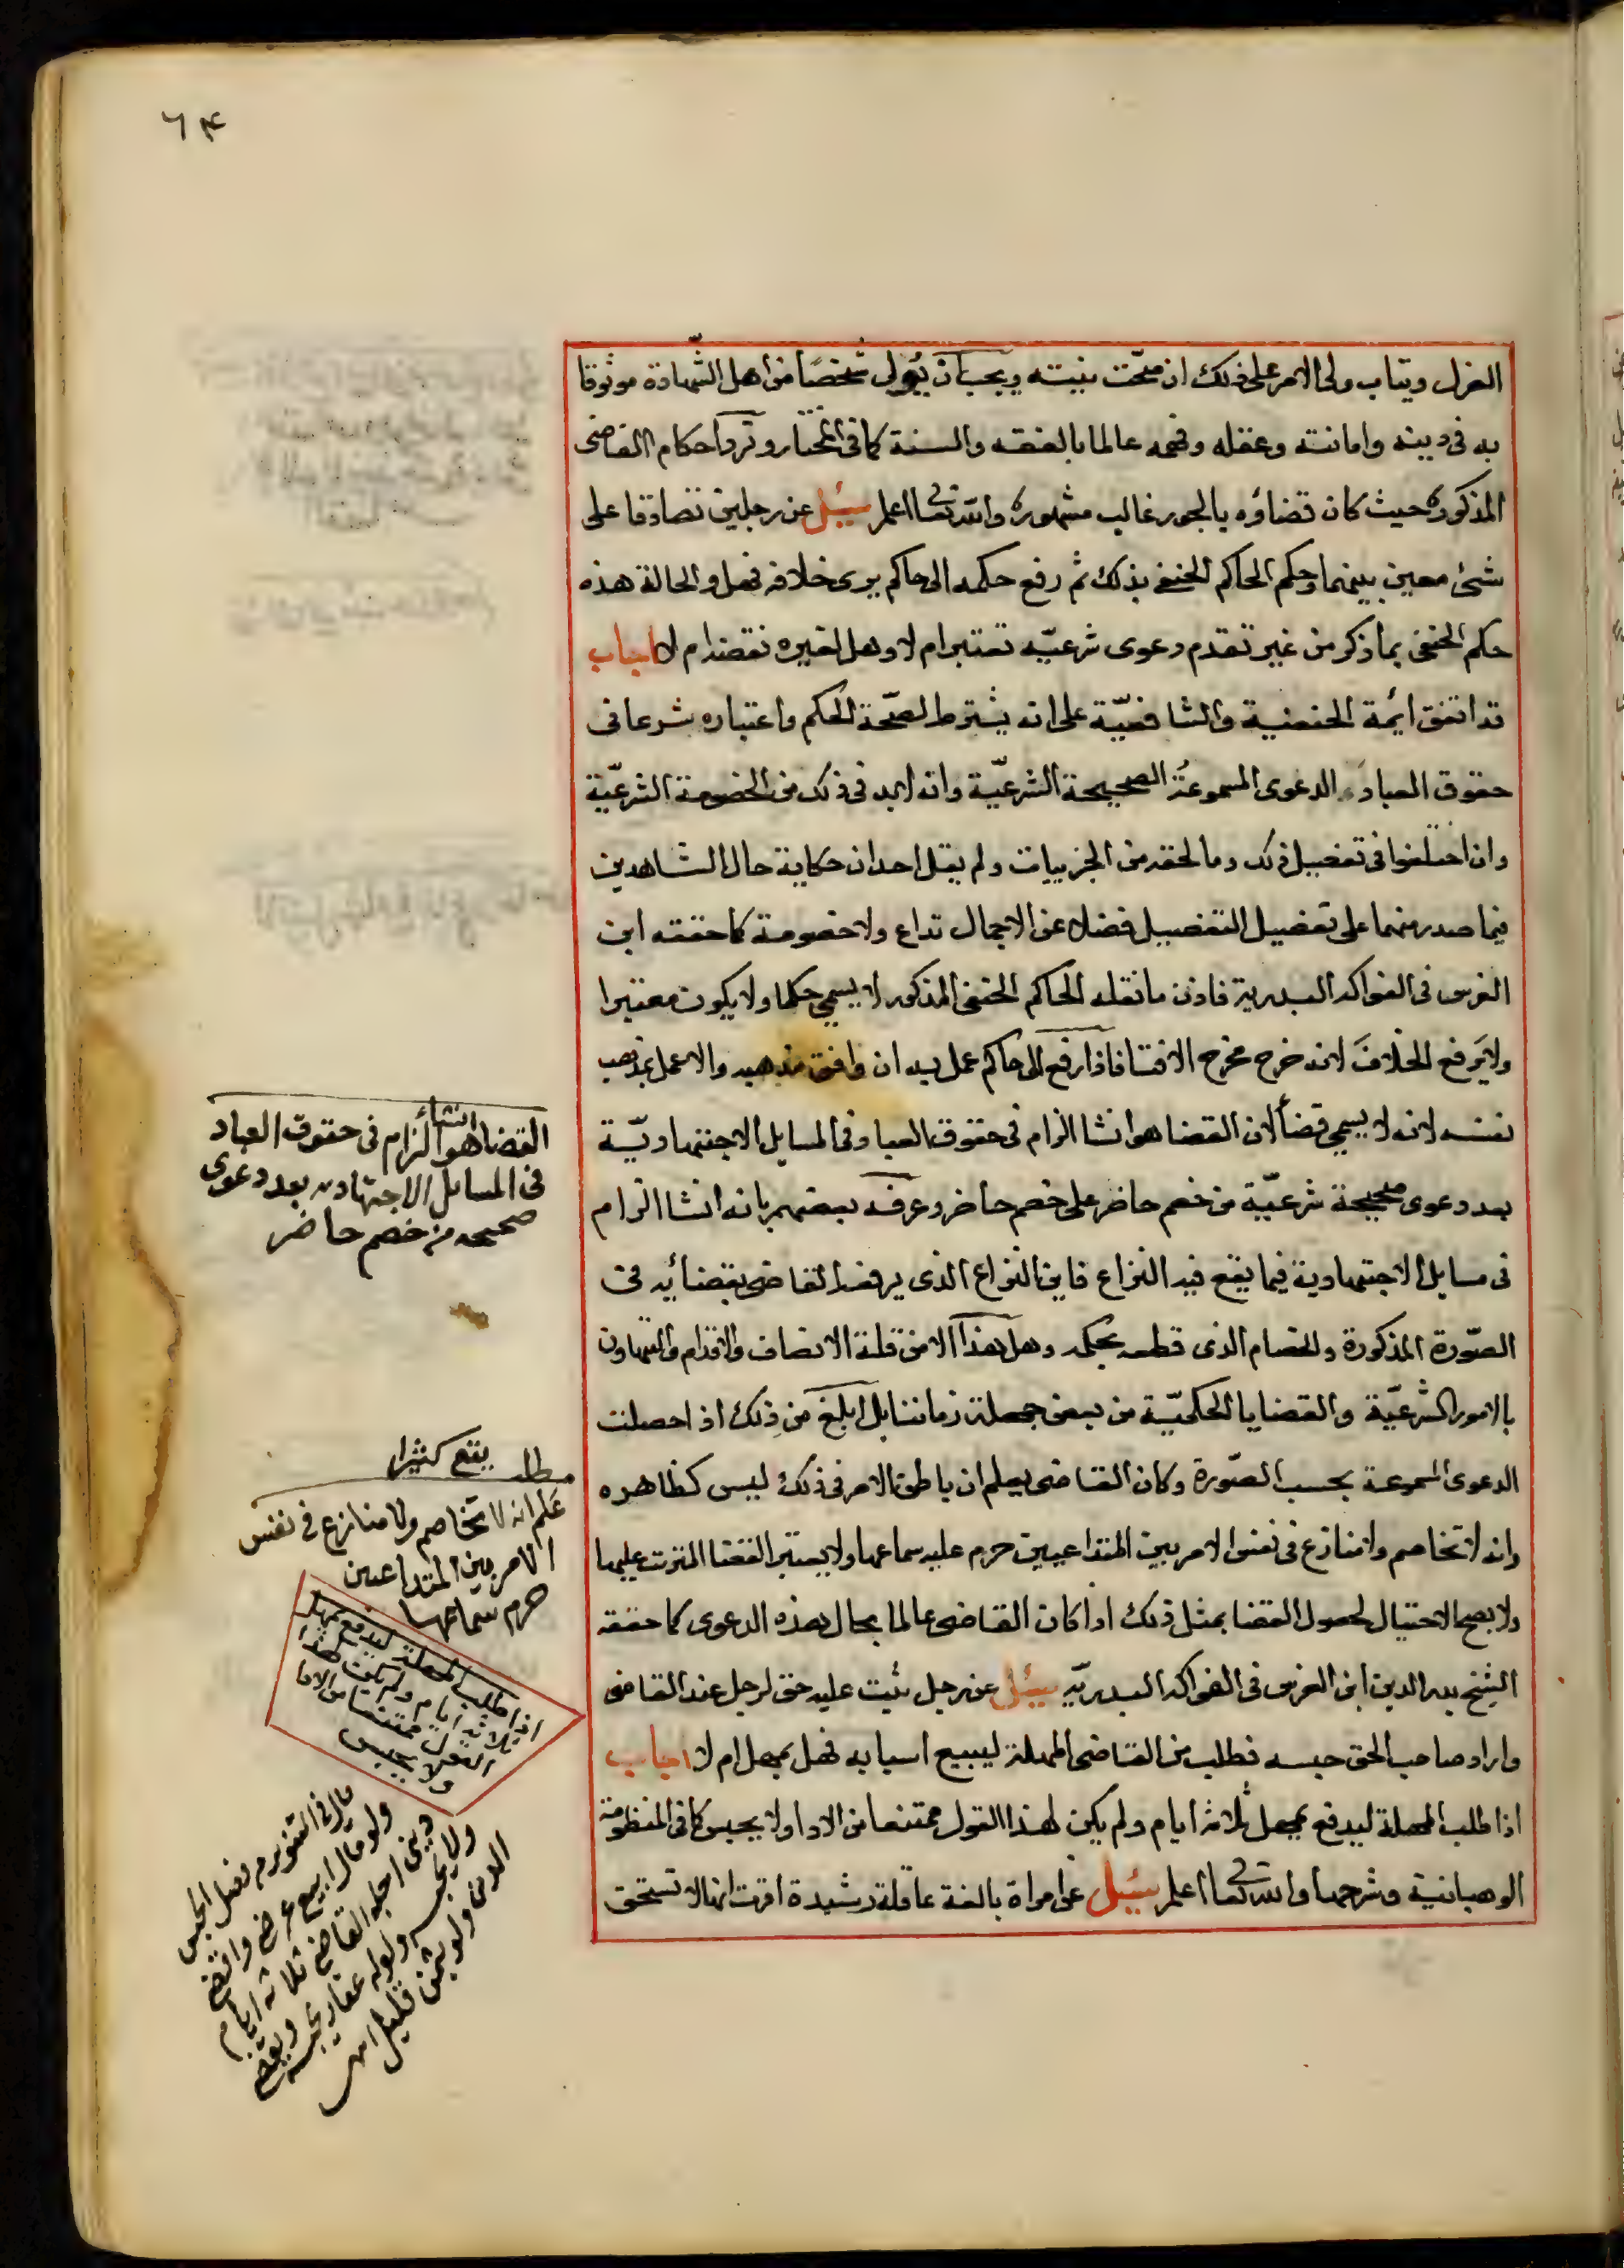 ٦٤
العزل ويثاب ولى الامر على ذلك ان صحّت نيته ويجب ان يُولى شخصًا من اهل الشهادة موثوقا
به فى دينه وامانته وعقله وفهمه عالما بالفقه والسنة كما فى المختار وترد احكام القاضى
المذكور حيث كان قضاؤه بالجور غالب مشهوره والله تعالى اعلم سئل عن رجلين تصادقا على
شئ معين بينهما وحكم الحاكم الحنفى بذلك ثم رفع حكمه الى حاكم يرى خلافه فهل والحالة هذه
حكم الحنفى بما ذكر من غير تقدم دعوى شرعيّه تعتبر ام لا وهل لغيره نقضه ام لا اجاب
قد اتفق ايمة الحنفية والشافعيّة على انه يشترط لصحّة الحكم واعتباره شرعا فى
حقوق العباد الدعوى المسموعة الصحيحة الشرعيّة وانه لابد فى ذلك من الخصومة الشرعيّة
وان اختلفوا فى تفصيل ذلك وما لحقه من الجزييات ولم يقل احد ان حكاية حال الشاهدين
فيما صدر منهما على تفصيل التفصيل فضلا عن الاجمال تداع ولا خصومة كما حققه ابن
الغرس فى الفواكه البدرية فاذن ما نقله الحاكم الحنفى المذكور لا يسمى حكما ولا يكون معتبرا
ولا يَرفع الخلافَ لانه خرج مخرج الافتا فاذا رفع الى حاكم عمل به ان وافق مذهبه والا عمل بمذهب
نفسه لانه لا يسمى قضأ لان القضا هو انشا الزام فى حقوق العباد فى المسايل الاجتهاديّة
بعد دعوى صحيحة شرعيّة من خصم حاضر على خصم حاضر وعرفه بعضهم بانه انشا الزام
فى مسايل الاجتهادية فيما يقع فيه النزاع فاين النزاع الذى يرفعه القاضى بقضائه فى
الصّورة المذكورة والخصام الذى قطعه بحكمه وهل هذا الا من قلة الانصاف والاقدام والتهاون
بالامور الشرعيّة والقضايا الحكميّة من بعض جهلة زماننا بل ابلغ من ذلك اذا حصلت
الدعوى المسموعة بحسب الصّورة وكان القاضى يعلم ان باطن الامر فى ذلك ليس كظاهره
وانه لا تخاصم ولا تنازع فى نفس الامر بين المتداعيين حرم عليه سماعها ولا يعتبر القضا المترتب عليها
ولا يصح الاحتيال لحصول القضا بمثل ذلك اذا كان القاضى عالما بحال هذه الدعوى كما حققه
الشيخ بدر الدين ابن الغرس فى الفواكه البدريّه سئل عن رجل ثبت عليه حق لرجل عند القاضى
واراد صاحب الحق حبسه فطلب من القاضى المهلة ليبيع اسبابه فهل يمهل ام لا اجاب
اذا طلب المهلة ليدفع يمهل ثلاثة ايام ولم يكن لهذا القول ممتنعا من الادا ولا يحبس كما فى المنظومة
الوهبانية وشرحها والله تعالى اعلم سئل عن امراة بالغة عاقلة رشيدة اقرت انها لا تستحق
القضا هو انشأ الزام فى حقوق العباد
فى المسايل الاجتهاديه بعد دعوى
صحيحه من خصم حاضر
مطلب يقع كثيرا
عَلم انه لا تخاصم ولا منازع فى نفس
الامر بين المتداعيين
حرم سماعها
اذا طلب المهلة ليدفع يمهل
ثلاثة ايام ولم يكن لهذا
القول ممتنعا من الادا
ولا يحبس
قال فى التنوير من فصل الحبس
ولو قال ابيع عرضى واقضى
دينى اجله القاضى ثلاثة ايام
ولا يحبسه ولو له عقار يحبسه ويبيعه ويقضى
الدين ولو بثمن قليل اهـ